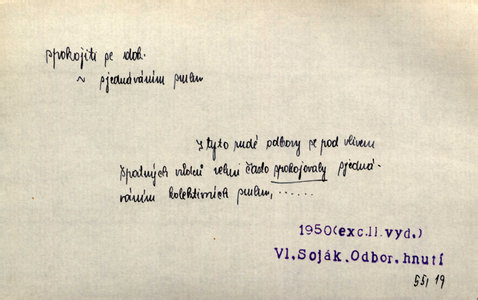 spokojiti se dok.
~ sjednáváním smluv
I tyto rudé odbory se pod vlivem
špatných vůdců velmi často spokojovaly sjedná-
váním kolektivních smluv, ......
1950(exc.II.vyd.)
Vl.Soják.Odbor.hnutí
19